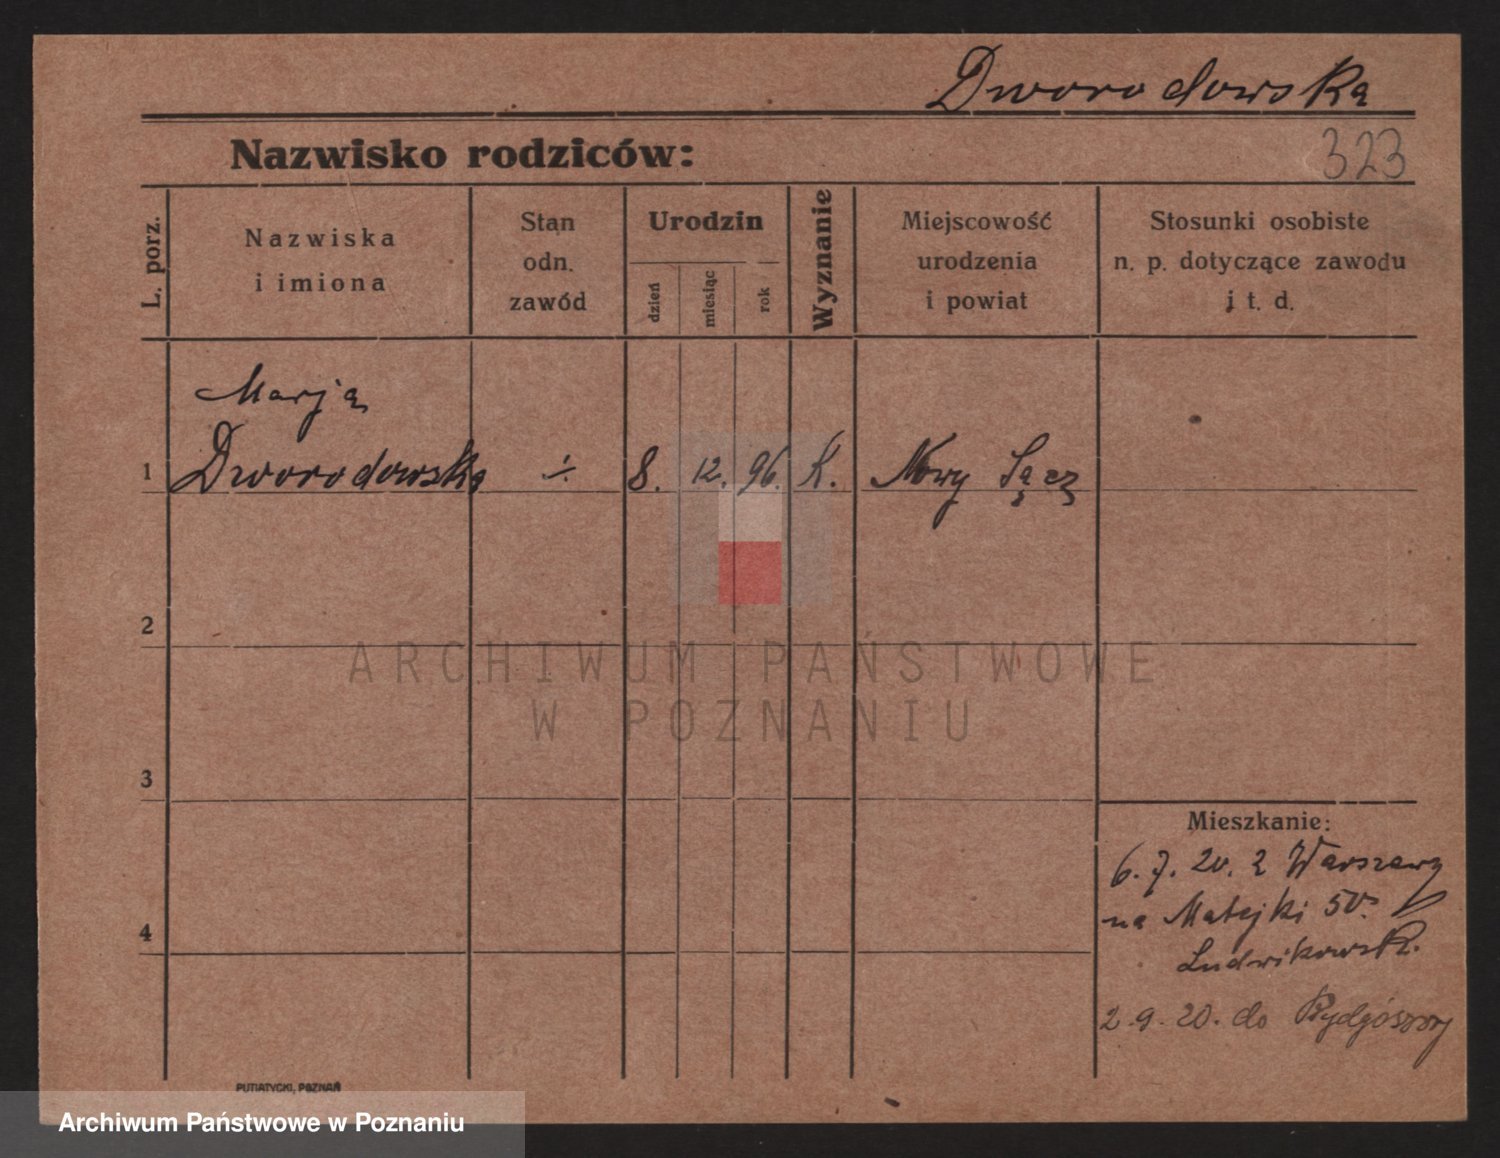 Dworodowska
Nazwisko rodziców:
323
L. porz.
Nazwiska
i imiona
Stan
odn.
zawód
Urodzin
dzień
miesiąc
rok
Wyznanie
Miejscowość
urodzenia
i powiat
Stosunki osobiste
n. p. dotyczące zawodu
j t. d.
Marja
1 Dworodowska ÷ 8. 12. 96. K. Nowy Sącz
2
ARCHIWUM PAŃSTWOWE
W POZNANIU
3
Mieszkanie:
6. 7. 20. z Warszawy
na Matejki 50.
4
Ludwikowsk.
2.9.20. do Bydgoszczy
PUTIATYCKI, POZNAŃ
Archiwum Państwowe w Poznaniu